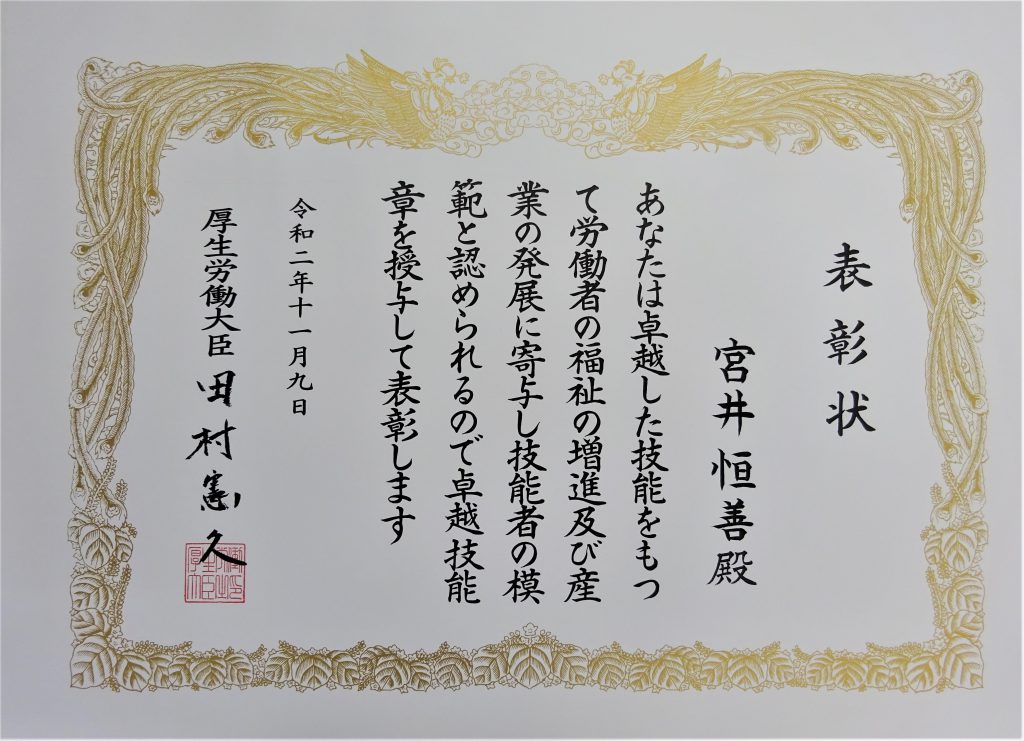 表彰状
宮井恒善殿
あなたは卓越した技能をもつ
て労働者の福祉の増進及び産
業の発展に寄与し技能者の模
範と認められるので卓越技能
章を授与して表彰します
令和二年十一月九日
厚生労働大臣 田村憲久